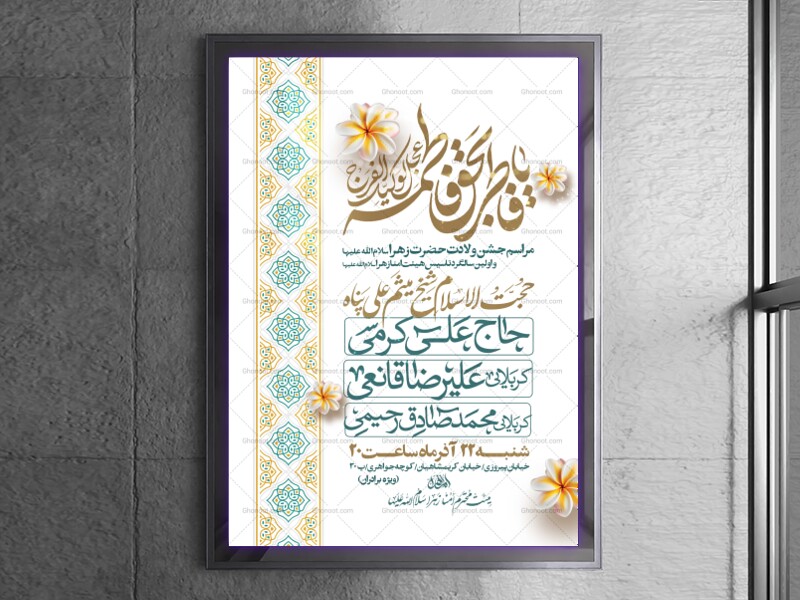 یا فاطر بحق فاطمه
عجل لولیک الفرج
مراسم جشن ولادت حضرت زهرا سلام الله علیها
و اولین سالگرد تاسیس هیئت امنا زهرا سلام الله علیها
حجت الاسلام شیخ میثم علی پناه
حاج علی کرمی
کربلائی علیرضا قانعی
کربلائی محمدصادق رحیمی
شنبه ۲۲ آذر ماه ساعت ۲۰
خیابان پیروزی/خیابان کریمشاهیان/کوچه جواهری/پ ۳۰
(ویژه برادران)
Ghonoot.com